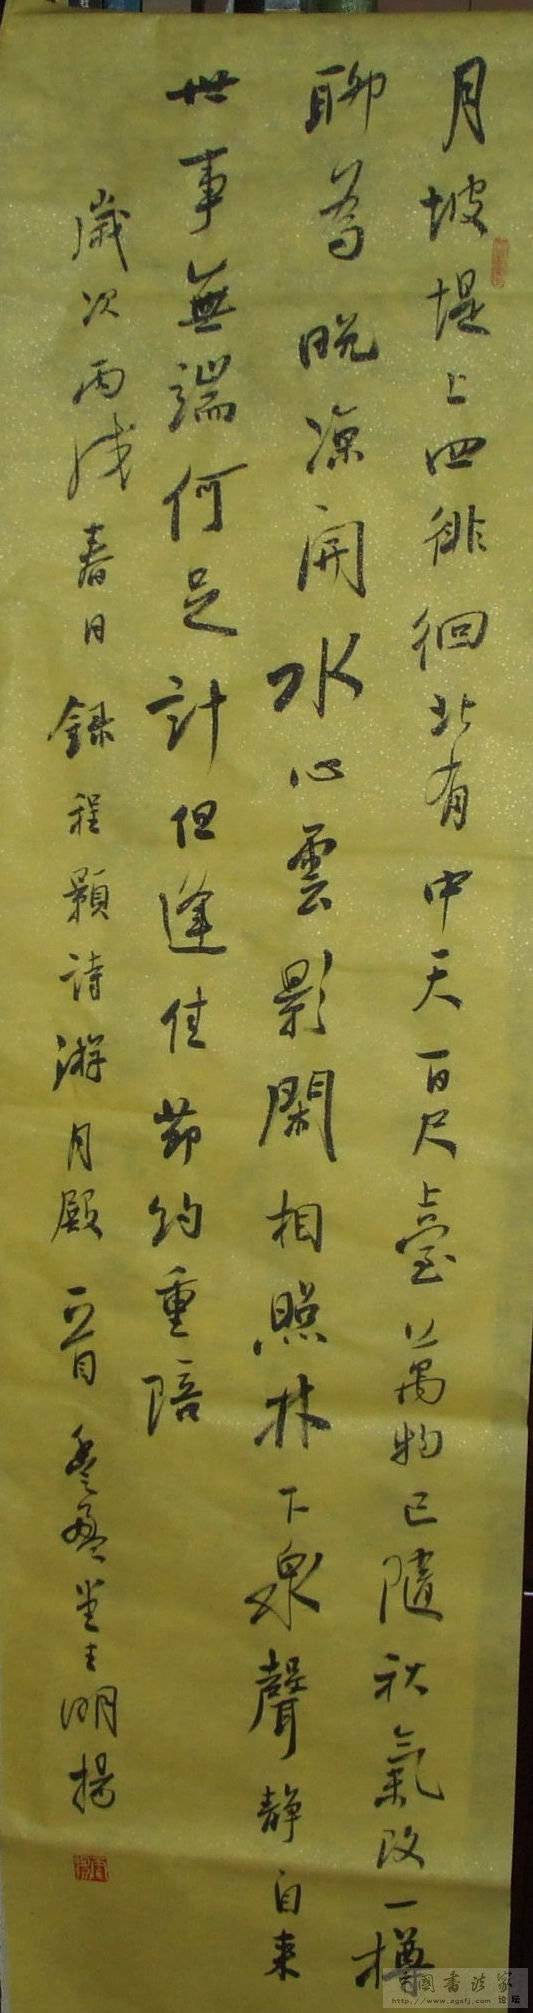 月坡堤上四徘徊北有中天百尺臺萬物已隨秋氣改一樽
聊為晚凉開水心雲影閑相照林下泉聲静自来
世事無端何足計但逢佳節約重陪
歲次丙戌春日録程顥詩游月殿一首 堂主明揚
中國書法家论坛
http://www.zgsfj.com